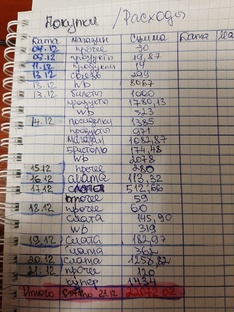 Покупки / Расходы
Дата магазин Сумма Дата Ма
04.12 прочее 30
09.12 продукты 19,87
11.12 продукты 14
13.12 299
13.12 WB 8067
13.12 билеты 1000
продукты 1780,13
WB 323
14.12 1385
продукты 971
1082,87
Бристоль 174,48
WB 2078
15.12 прочее 280
16.12 113,32
17.12 512,66
прочее 59
18.12 прочее 60
Смата 145,90
WB 319
19.12 Смата 182,97
Смата 362
20.12 Смата 1256,82
21.12 прочее 120
1434
Итого 21.12